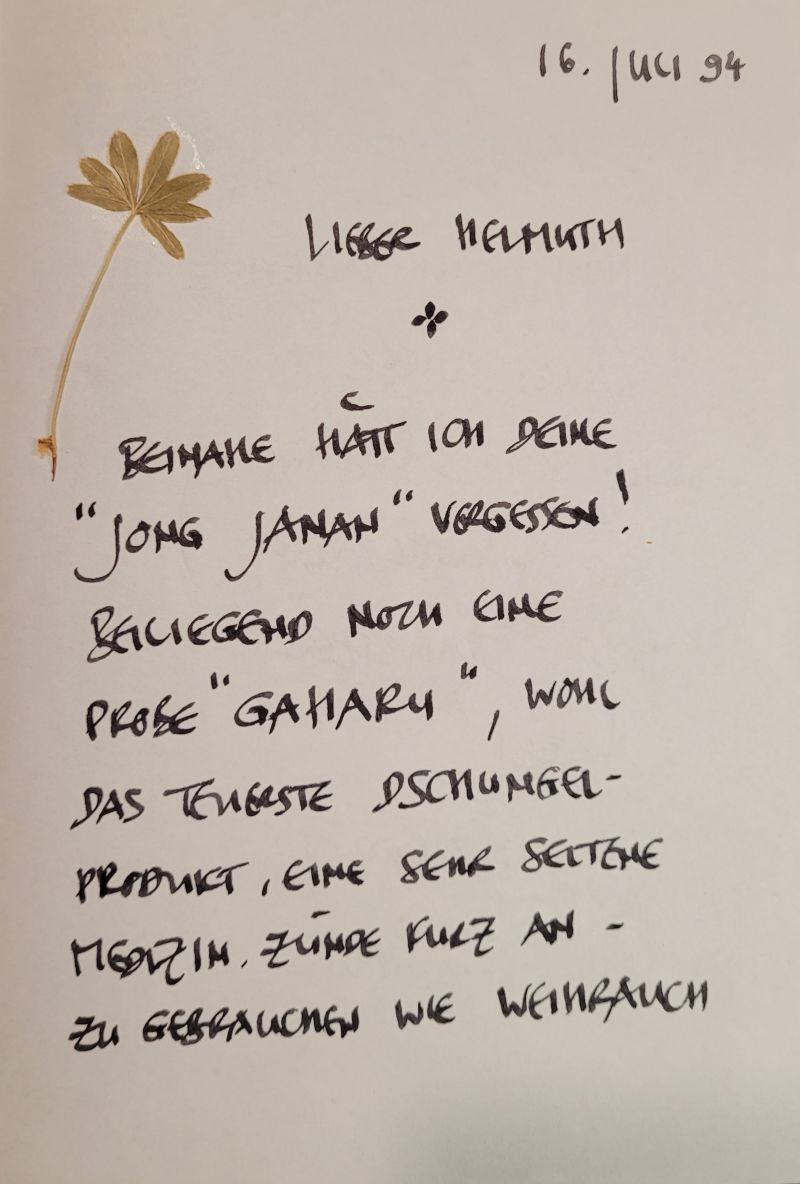 16. JULI 94
LIEBER HELMUTH
BEINAHE HÄTT ICH DEINE
"JONG JANAN" VERGESSEN!
BEILIEGEND NOCH EINE
PROBE "GAHARU", WOHL
DAS TEUERSTE DSCHUNGEL-
PRODUKT, EINE SEHR SELTENE
MEDIZIN. ZÜNDE KURZ AN -
ZU GEBRAUCHEN WIE WEIHRAUCH